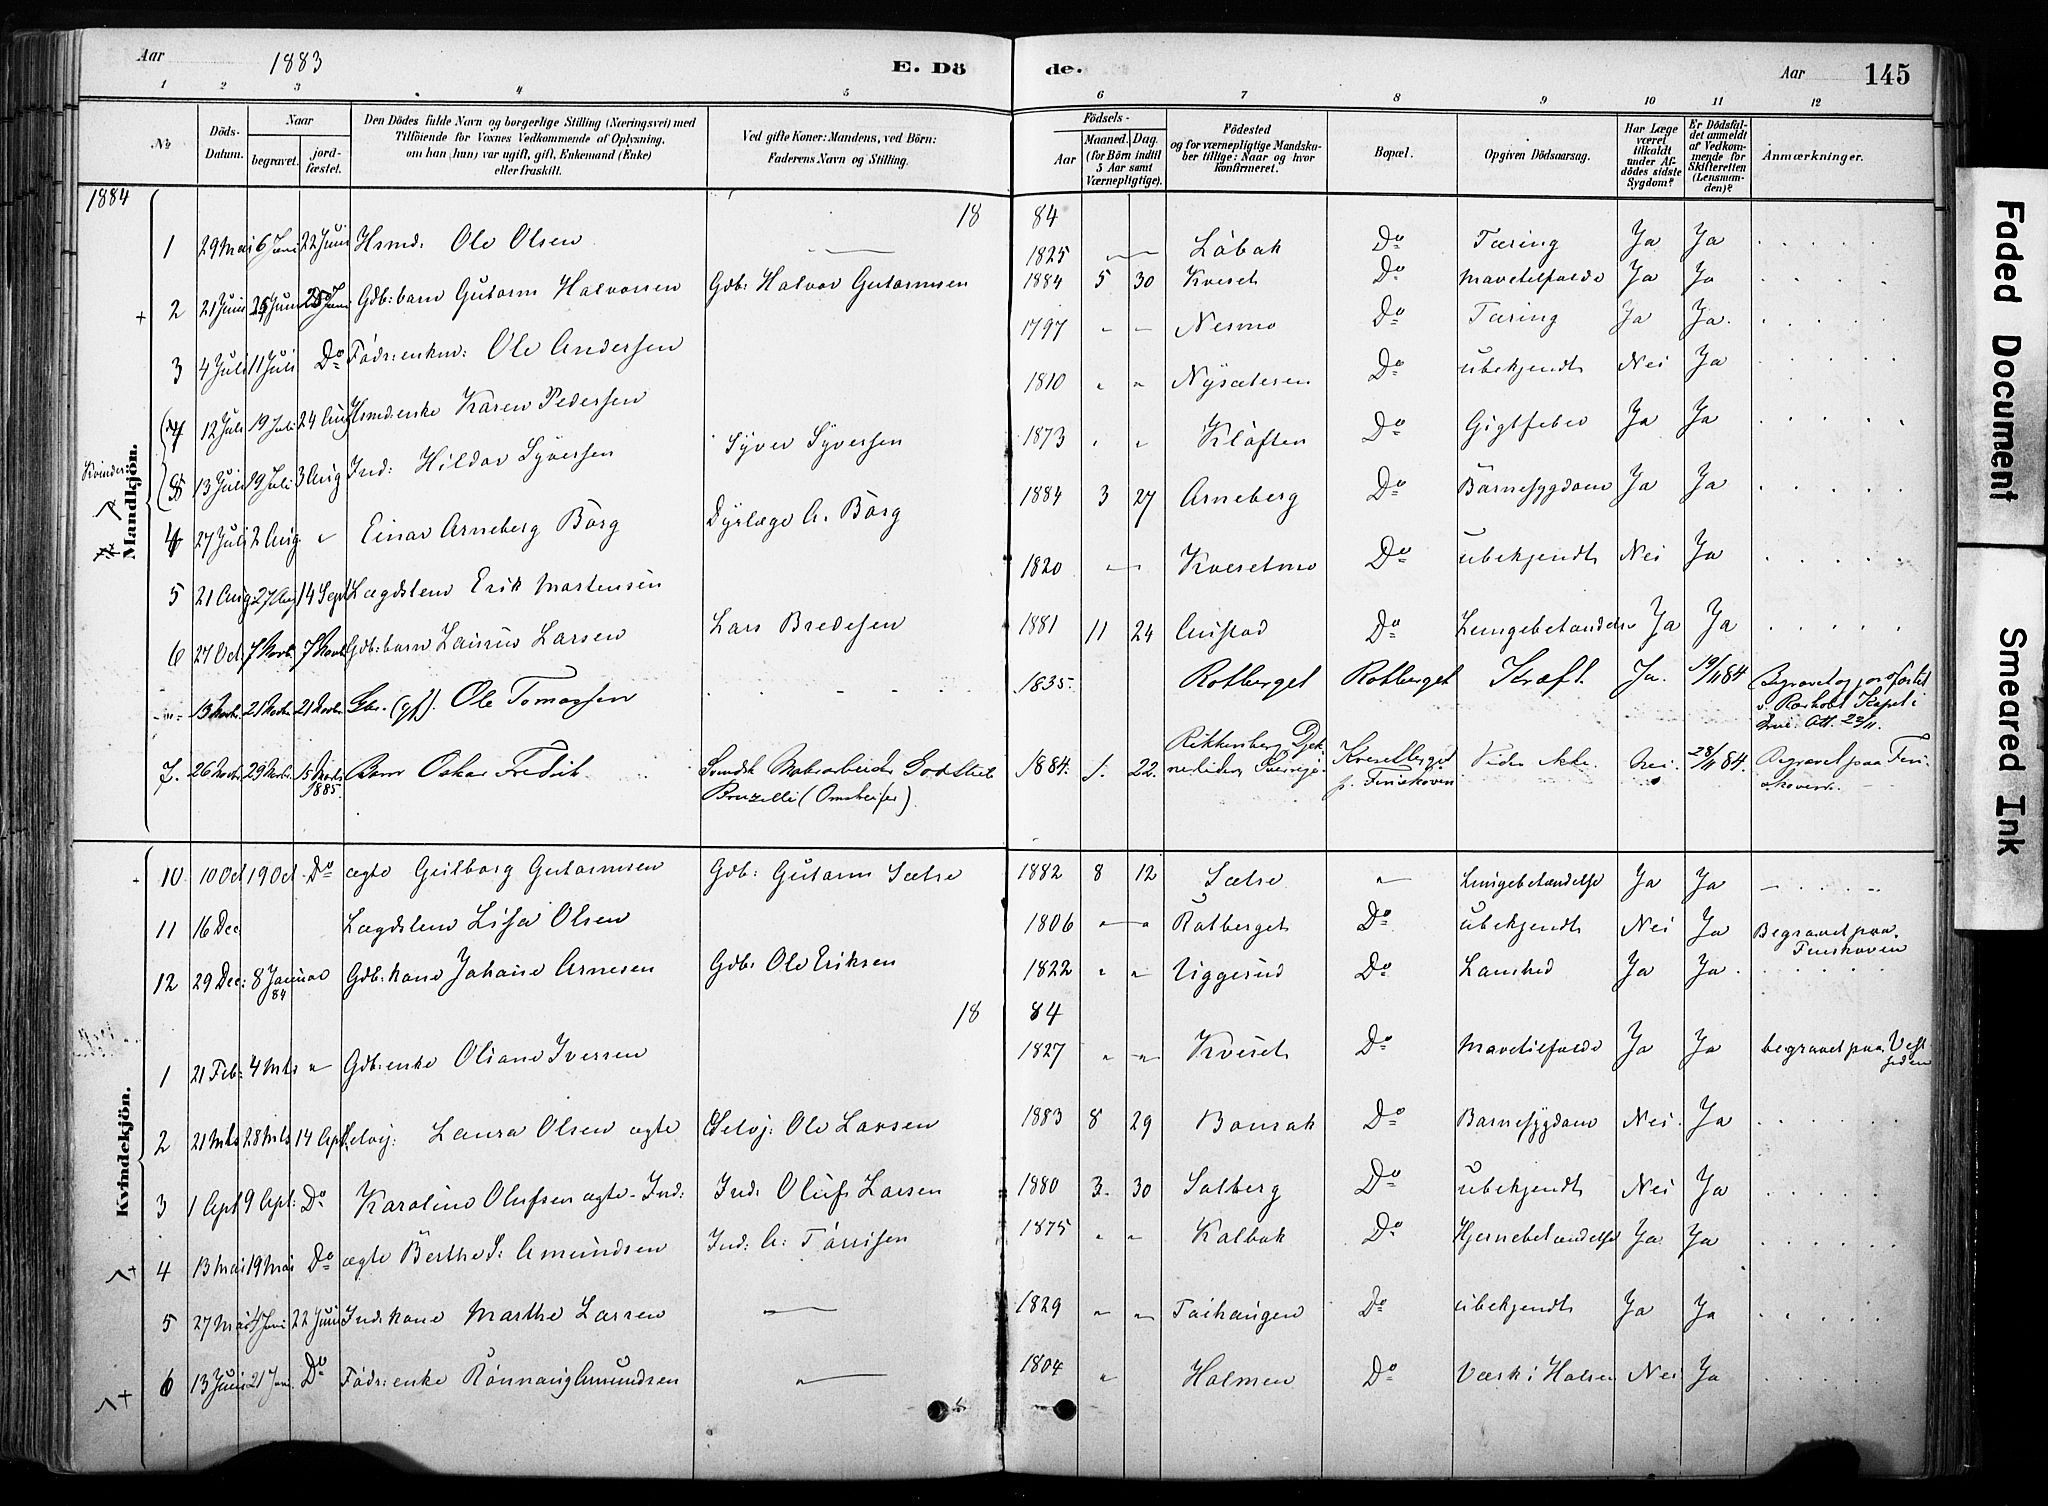 Aar 1883 E. Dö de. Aar 145
1 2 3 4 5 6 7 8 9 10 11 12
No. Döds-Datum. Naar begravet. jordfæstet. Den Dödes fulde Navn og borgerlige Stilling (Næringsvei) med Tilföiende for Voxnes Vedkommende af Oplysning, om han (hun) var ugift, gift, Enkemand (Enke) eller fraskilt. Ved gifte Koner: Mandens, ved Börn: Faderens Navn og Stilling. Födsels- Aar Maaned. Dag. (for Börn indtil 5 Aar samt Værnepligtige). Födested og for værnepligtige Mandskaber tillige: Naar og hvor konfirmeret. Bopæl. Opgiven Dödsaarsag. Har Læge været tilkaldt under Afdödes sidste Sygdom? Er Dödsfaldet anmeldt af Vedkommende for Skifteretten (Lensmanden)? Anmærkninger.
1884
18 84
1 29 Mai 6 Juni 22 Juni Hsmd. Ole Olsen — 1825 Löbak Do Tæring Ja Ja
2 21 Juni 25 Juni Gdb: barn Gutorm Halvorsen Gdb: Halvor Gutormsen 1884 5 30 Kveset Do Mavetilfælde Ja Ja
3 4 Juli 11 Juli Do Födr: enkm: Ole Andersen 1797 " " Nesmo Do Tæring Ja Ja.
Kvinder
12 Juli 19 Juli 24 Aug Hsmd: enke Karen Pedersen 1810 " " Nysæteren Do ubekjendt Nei Ja
13 Juli 19 Juli 3 Aug Ind: Hilda Syversen Syver Syversen 1873 " " Klöften Do Gigtfeber Ja Ja
Mandkjön.
4 27 Juli 2 Aug " Einar Arneberg Borg Dyrlæge A. Borg 1884 3 27 Arneberg Do Barnesygdom Ja Ja
5 21 Aug 27 Aug 14 Sept Lægdslem Erik Mortensen 1820 Kvesetmo Do ubekjendt Nei Ja
6 27 Oct 7 Novb. 7 Novb. Gdb: barn Laurus Larsen Lars Bredesen 1881 11 24 Austad Do Lungebetændelse Ja Ja
13 Novbr. 21 Novbr. 21 Novbr. Gbr. (gf). Ole Tomassen 1835. Rotberget Rotberget Kræft. Ja. 19/11 84 Begravet og jordfæstet
v. Kapel i
Att. 22/11.
7. 26 Novbr. 29 Novbr. 15 Marts 1885. Barn Oskar Fredrik Svensk Gottlieb
Bruzelli 1884. 1. 22. Sverige. Kvesetberget
p. Finskoven Vides ikke. Nei. 28/11 84. Begravet paa Fin-
skoven.
10 10 Oct 19 Oct Do ægte Gulborg Gutormsen Gdb: Gutorm Sætre 1882 8 12 Sætre " Lungebetændelse Ja Ja
11 16 Dec Lægdslem Lisa Olsen 1806 " " Rotberget Do ubekjendt Nei Ja Begravet paa
Finskoven
12 29 Dec: 8 Januar 84 Gdb: kone Johane Arnesen Gdb: Ole Eriksen 1822 " " Viggesud Do Lamhed Ja Ja.
18 84
Kvindekjön.
1 21 Feb: 4 Mts " Gdb: enke Oliane Iversen 1827 " " Kveset Do Mavetilfælde Ja Ja begravet paa Vest
siden
2 21 Mts 28 Mts 14 Apr Selvej: Laura Olsen ægte Selvj: Ole Larsen 1883 8 29 Bonsak Do Barnesygdom Nei Ja
3 1 Apl 9 Apl: Do Karoline Olufsen ægte Ind: Ind: Oluf Larsen 1880 3. 30 Solberg Do ubekjendt Nei Ja
4 13 Mai 19 Mai Do ægte Berthe S: Amundsen Ind: A: Törrisen 1875 " " Kalbak Do Hjernebetændelse Ja Ja
5 27 Mai 4 Juni 22 Juni Indskone Marthe Larsen — 1829 " " Taihaugen Do ubekjendt Ja Ja
6 13 Juni 21 Juni Do Födr: enke Rönnaug Amundsen — 1804 " Holmen Do Værk i Halsen Nei Ja
Faded Document
Smeared Ink